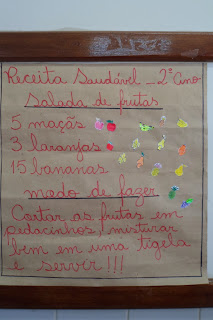 Receita Saudável - 2º ano
Salada de frutas
5 maçãs
3 laranjas
15 bananas
modo de fazer
Cortar as frutas em
pedacinhos, misturar
bem em uma tigela
e servir!!!